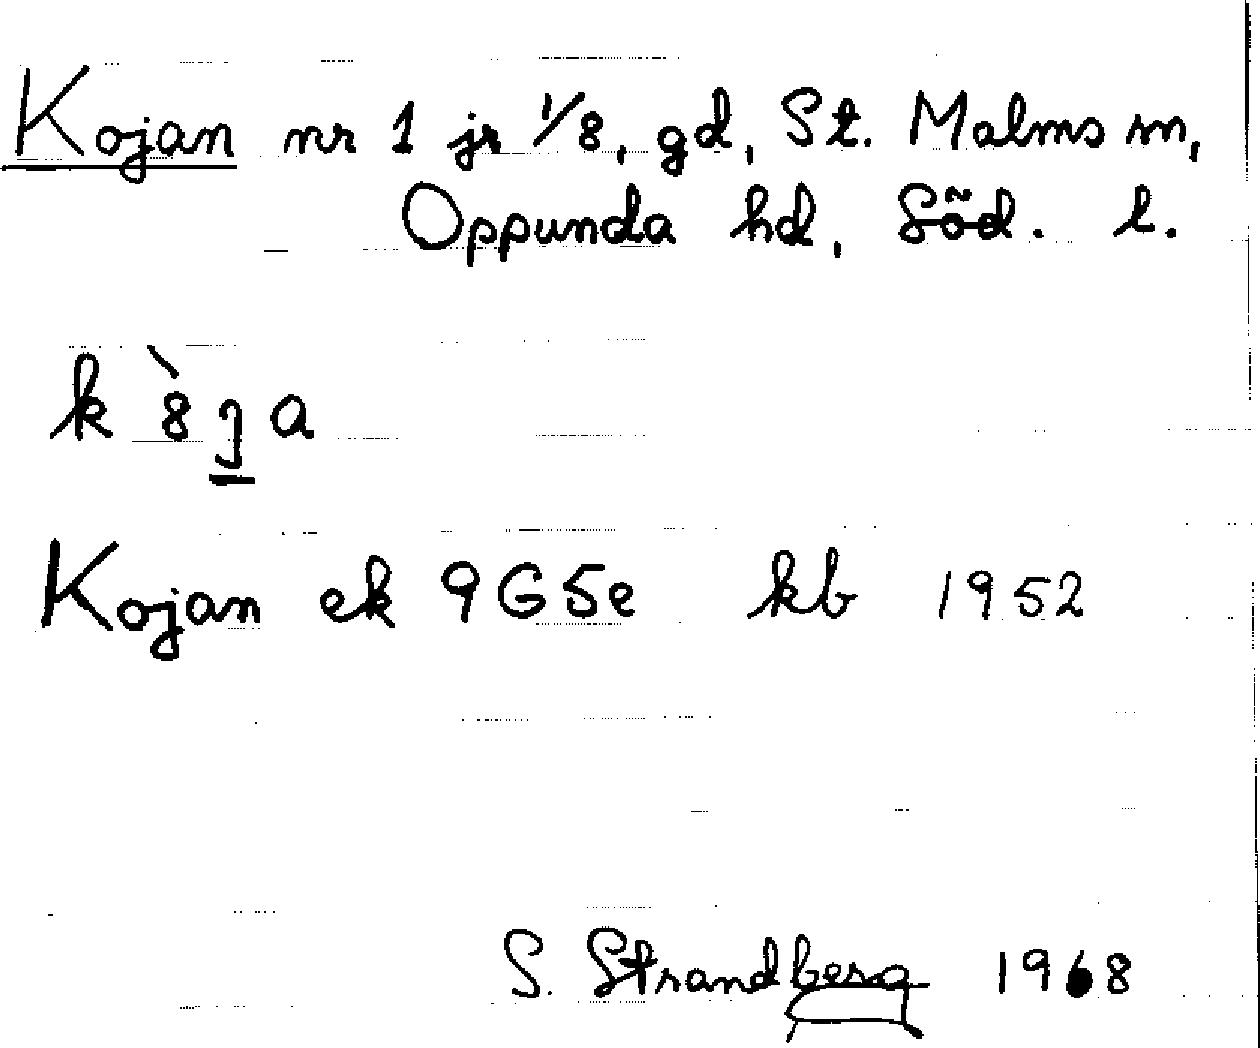 Kojan nr 1 js 1/8, gd, St. Malms sn,
Oppunda hd, Söd. l.
k 8̀ j a
Kojan ek 9G5e kb 1952
S. Strandberg 1968